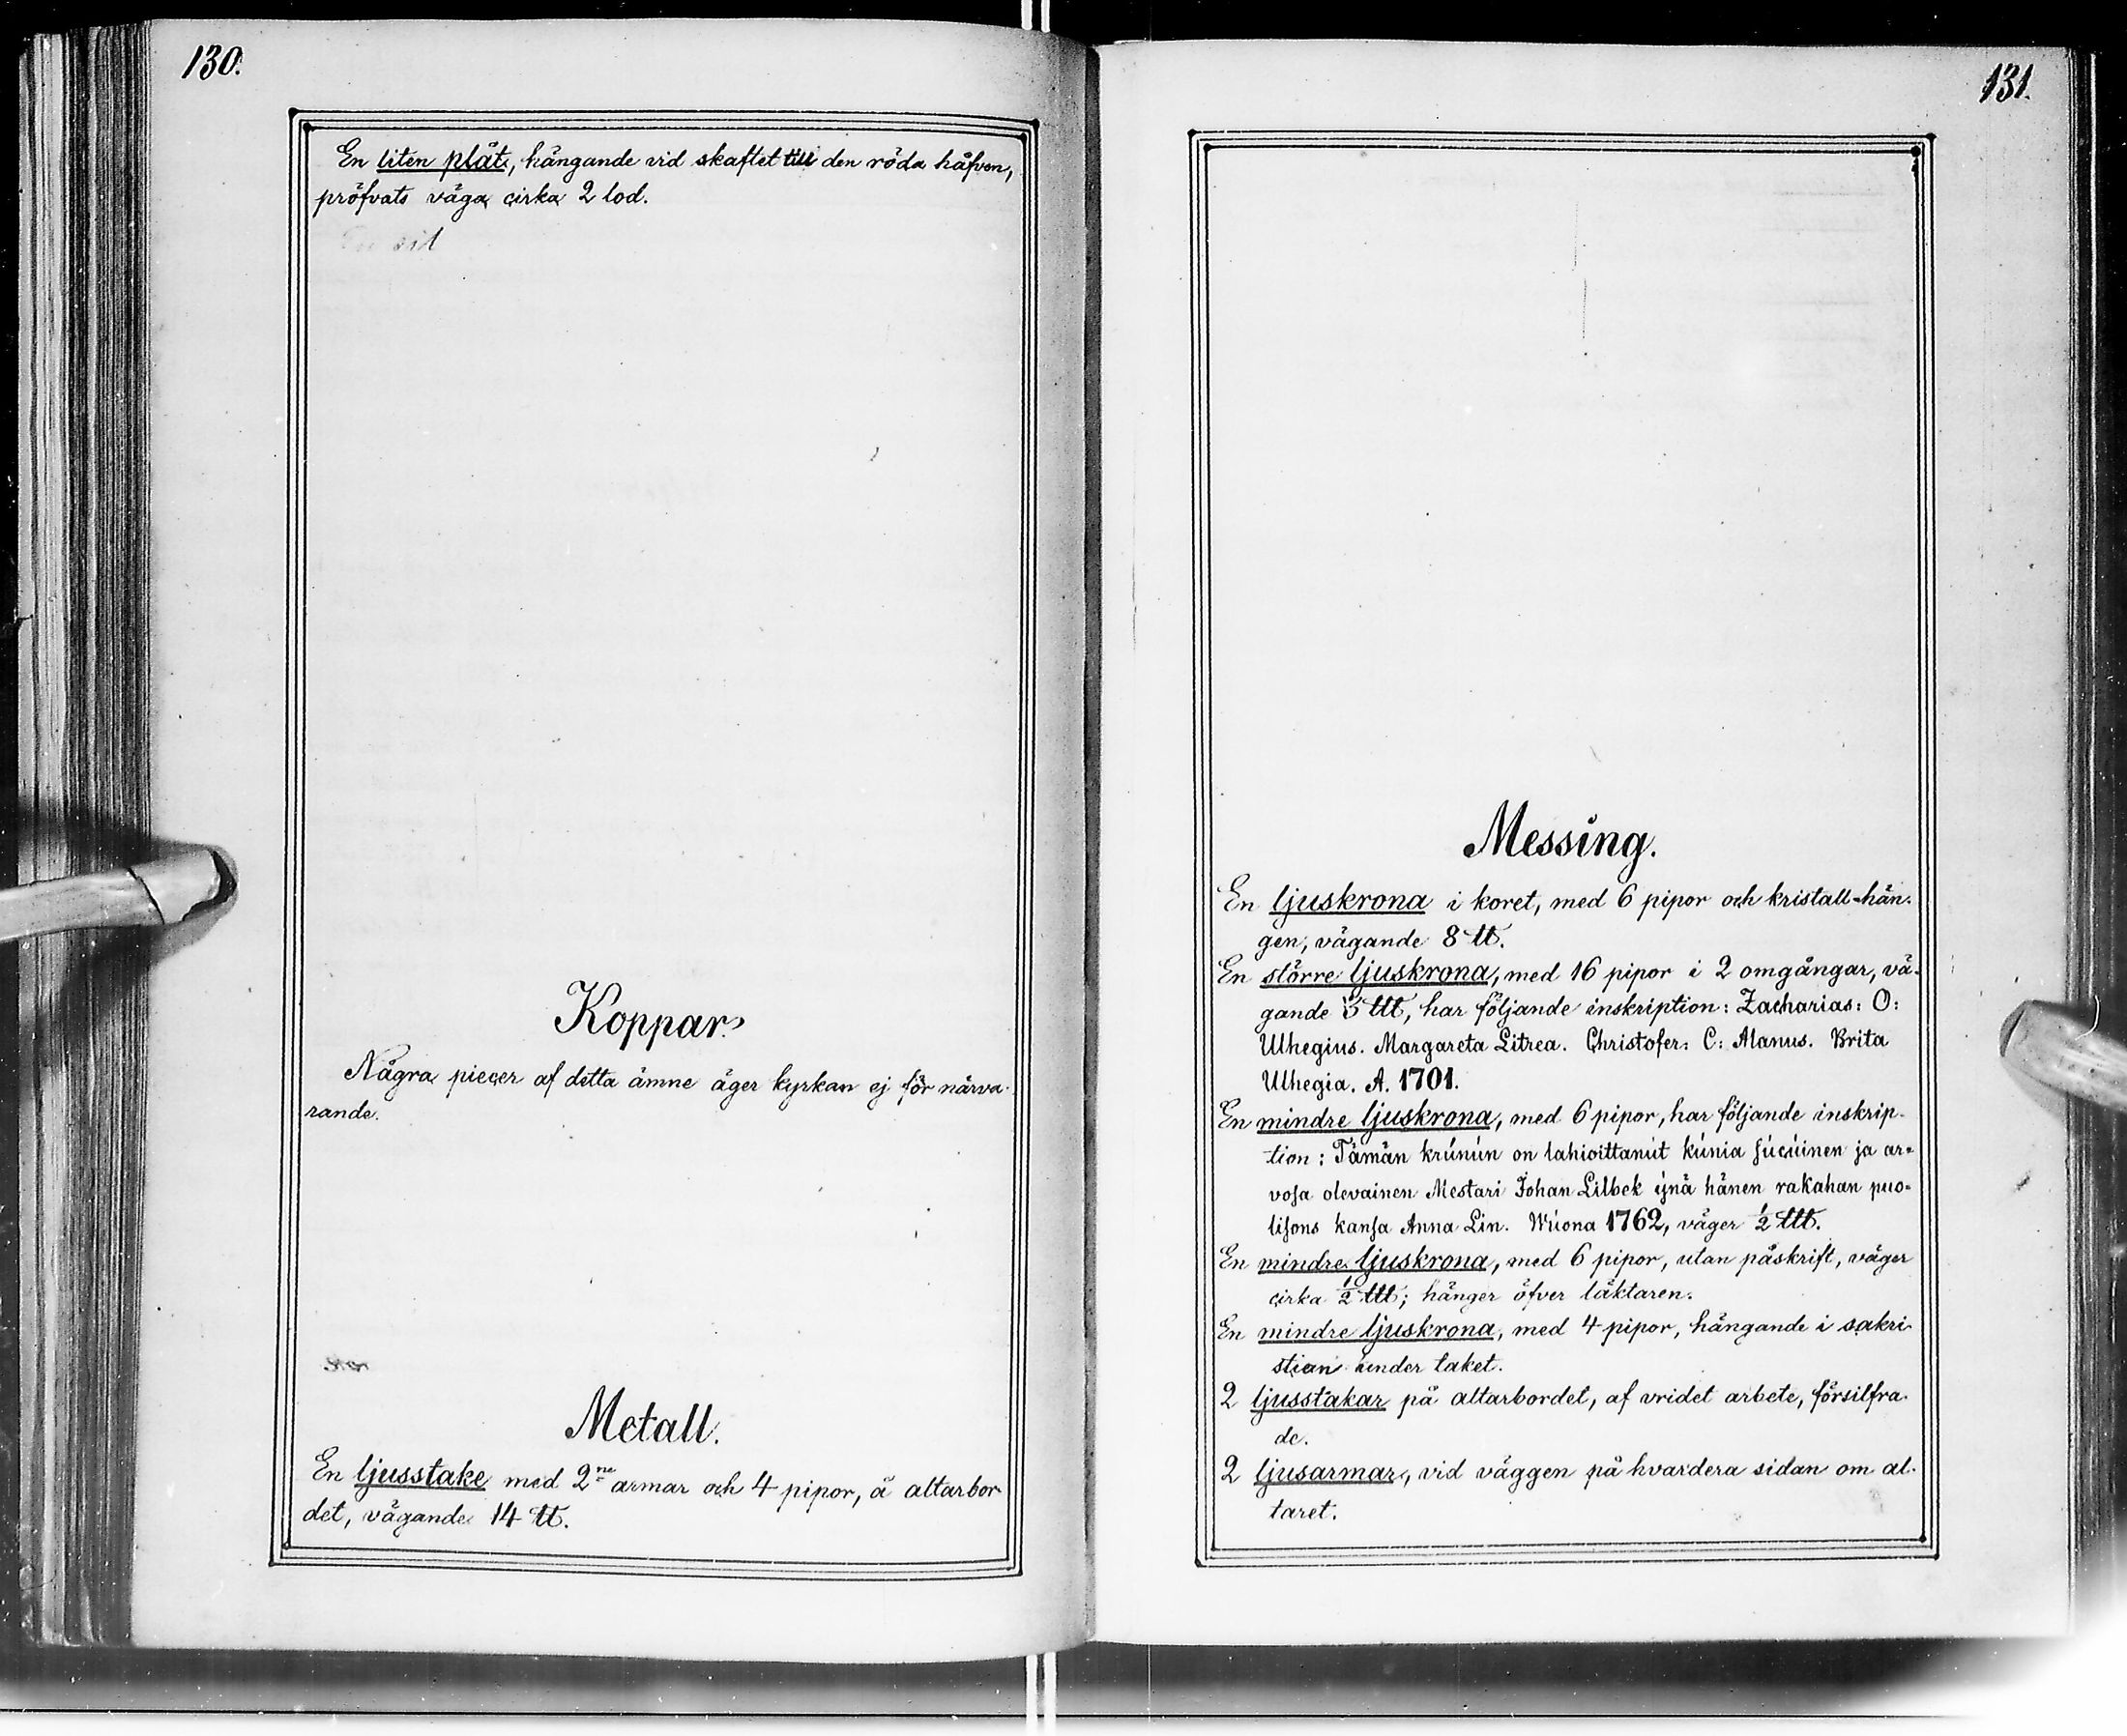 130.
En liten plåt, hängande vid skaftet till den röda håfven,
pröfvats väga cirka 2 lod.
Koppar.
Några piecer af detta ämne äger kyrkan ej för närva-
rande.
Metall.
En ljusstake med 2ne armar och 4 pipor, å altarbor-
det, vägande 14 ℔.
131.
Messing.
En ljuskrona i koret, med 6 pipor och kristall-hän-
gen, vägande 8 ℔.
En större ljuskrona, med 16 pipor i 2 omgångar, vä-
gande 3 L℔, har följande inskription: Zacharias: O:
Ulhegius. Margareta Litrea. Christofer: C: Alanus. Brita
Ulhegia. A. 1701.
En mindre ljuskrona, med 6 pipor, har följande inskrip-
tion: Tämän krúnún on lahioittanút kúnia súcúinen ja ar-
vosa olevainen Mestari Johan Lilbek ijnä hänen rakahan puo-
lisons kansa Anna Lin. Wúona 1762, väger ½ L℔.
En mindre ljuskrona, med 6 pipor, utan påskrift, väger
cirka ½ L℔; hänger öfver läktaren.
En mindre ljuskrona, med 4 pipor, hängande i sakri-
stian under taket.
2 ljusstakar på altarbordet, af vridet arbete, försilfra-
de.
2 ljusarmar, vid väggen på hvardera sidan om al-
taret.